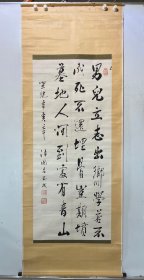 男兒立志出鄉關學若不
成死不還埋骨豈期墳
墓地人間到處有青山